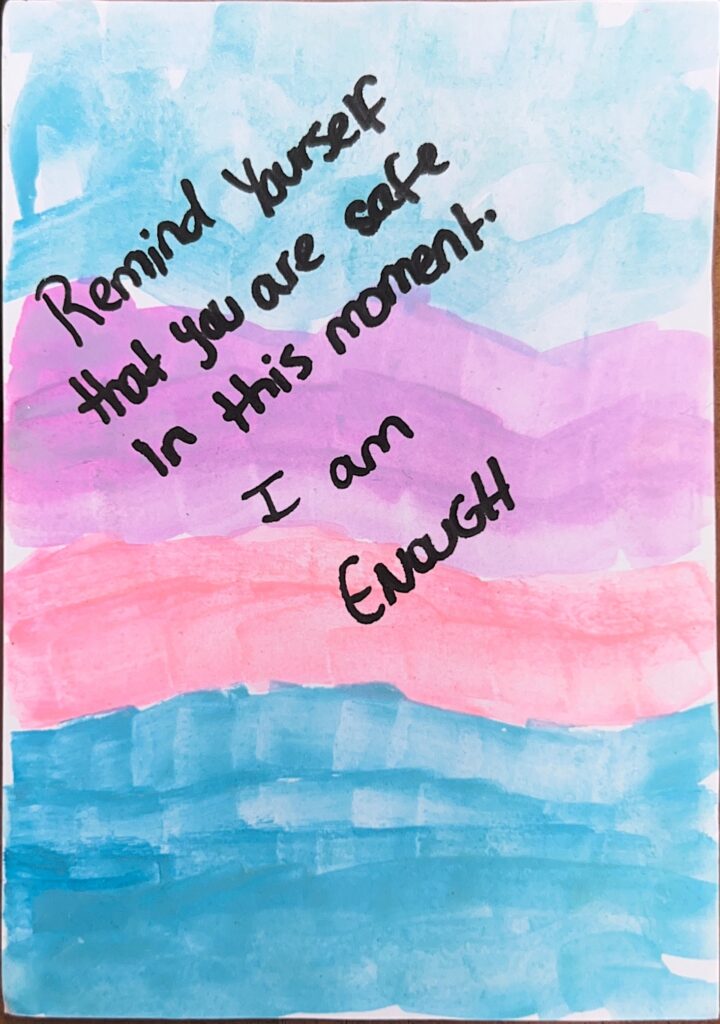 Remind Yourself
that you are safe
In this moment.
I am
ENOUGH